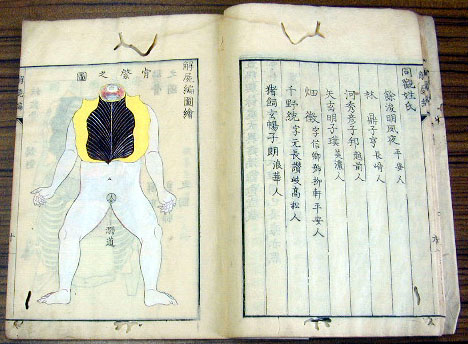 同觀姓氏
明風夜 平安人
林 鼎子亨 長崎人
河秀彥子邦 越前人
矢玄明子璞 美濃人
畑 徵 字信卿號柳軒 平安人
千野統 字元長 讚岐高松人
猪飼玄暢子朗 浪華人
解屍編圖繪
營之圖
溺道
解屍編